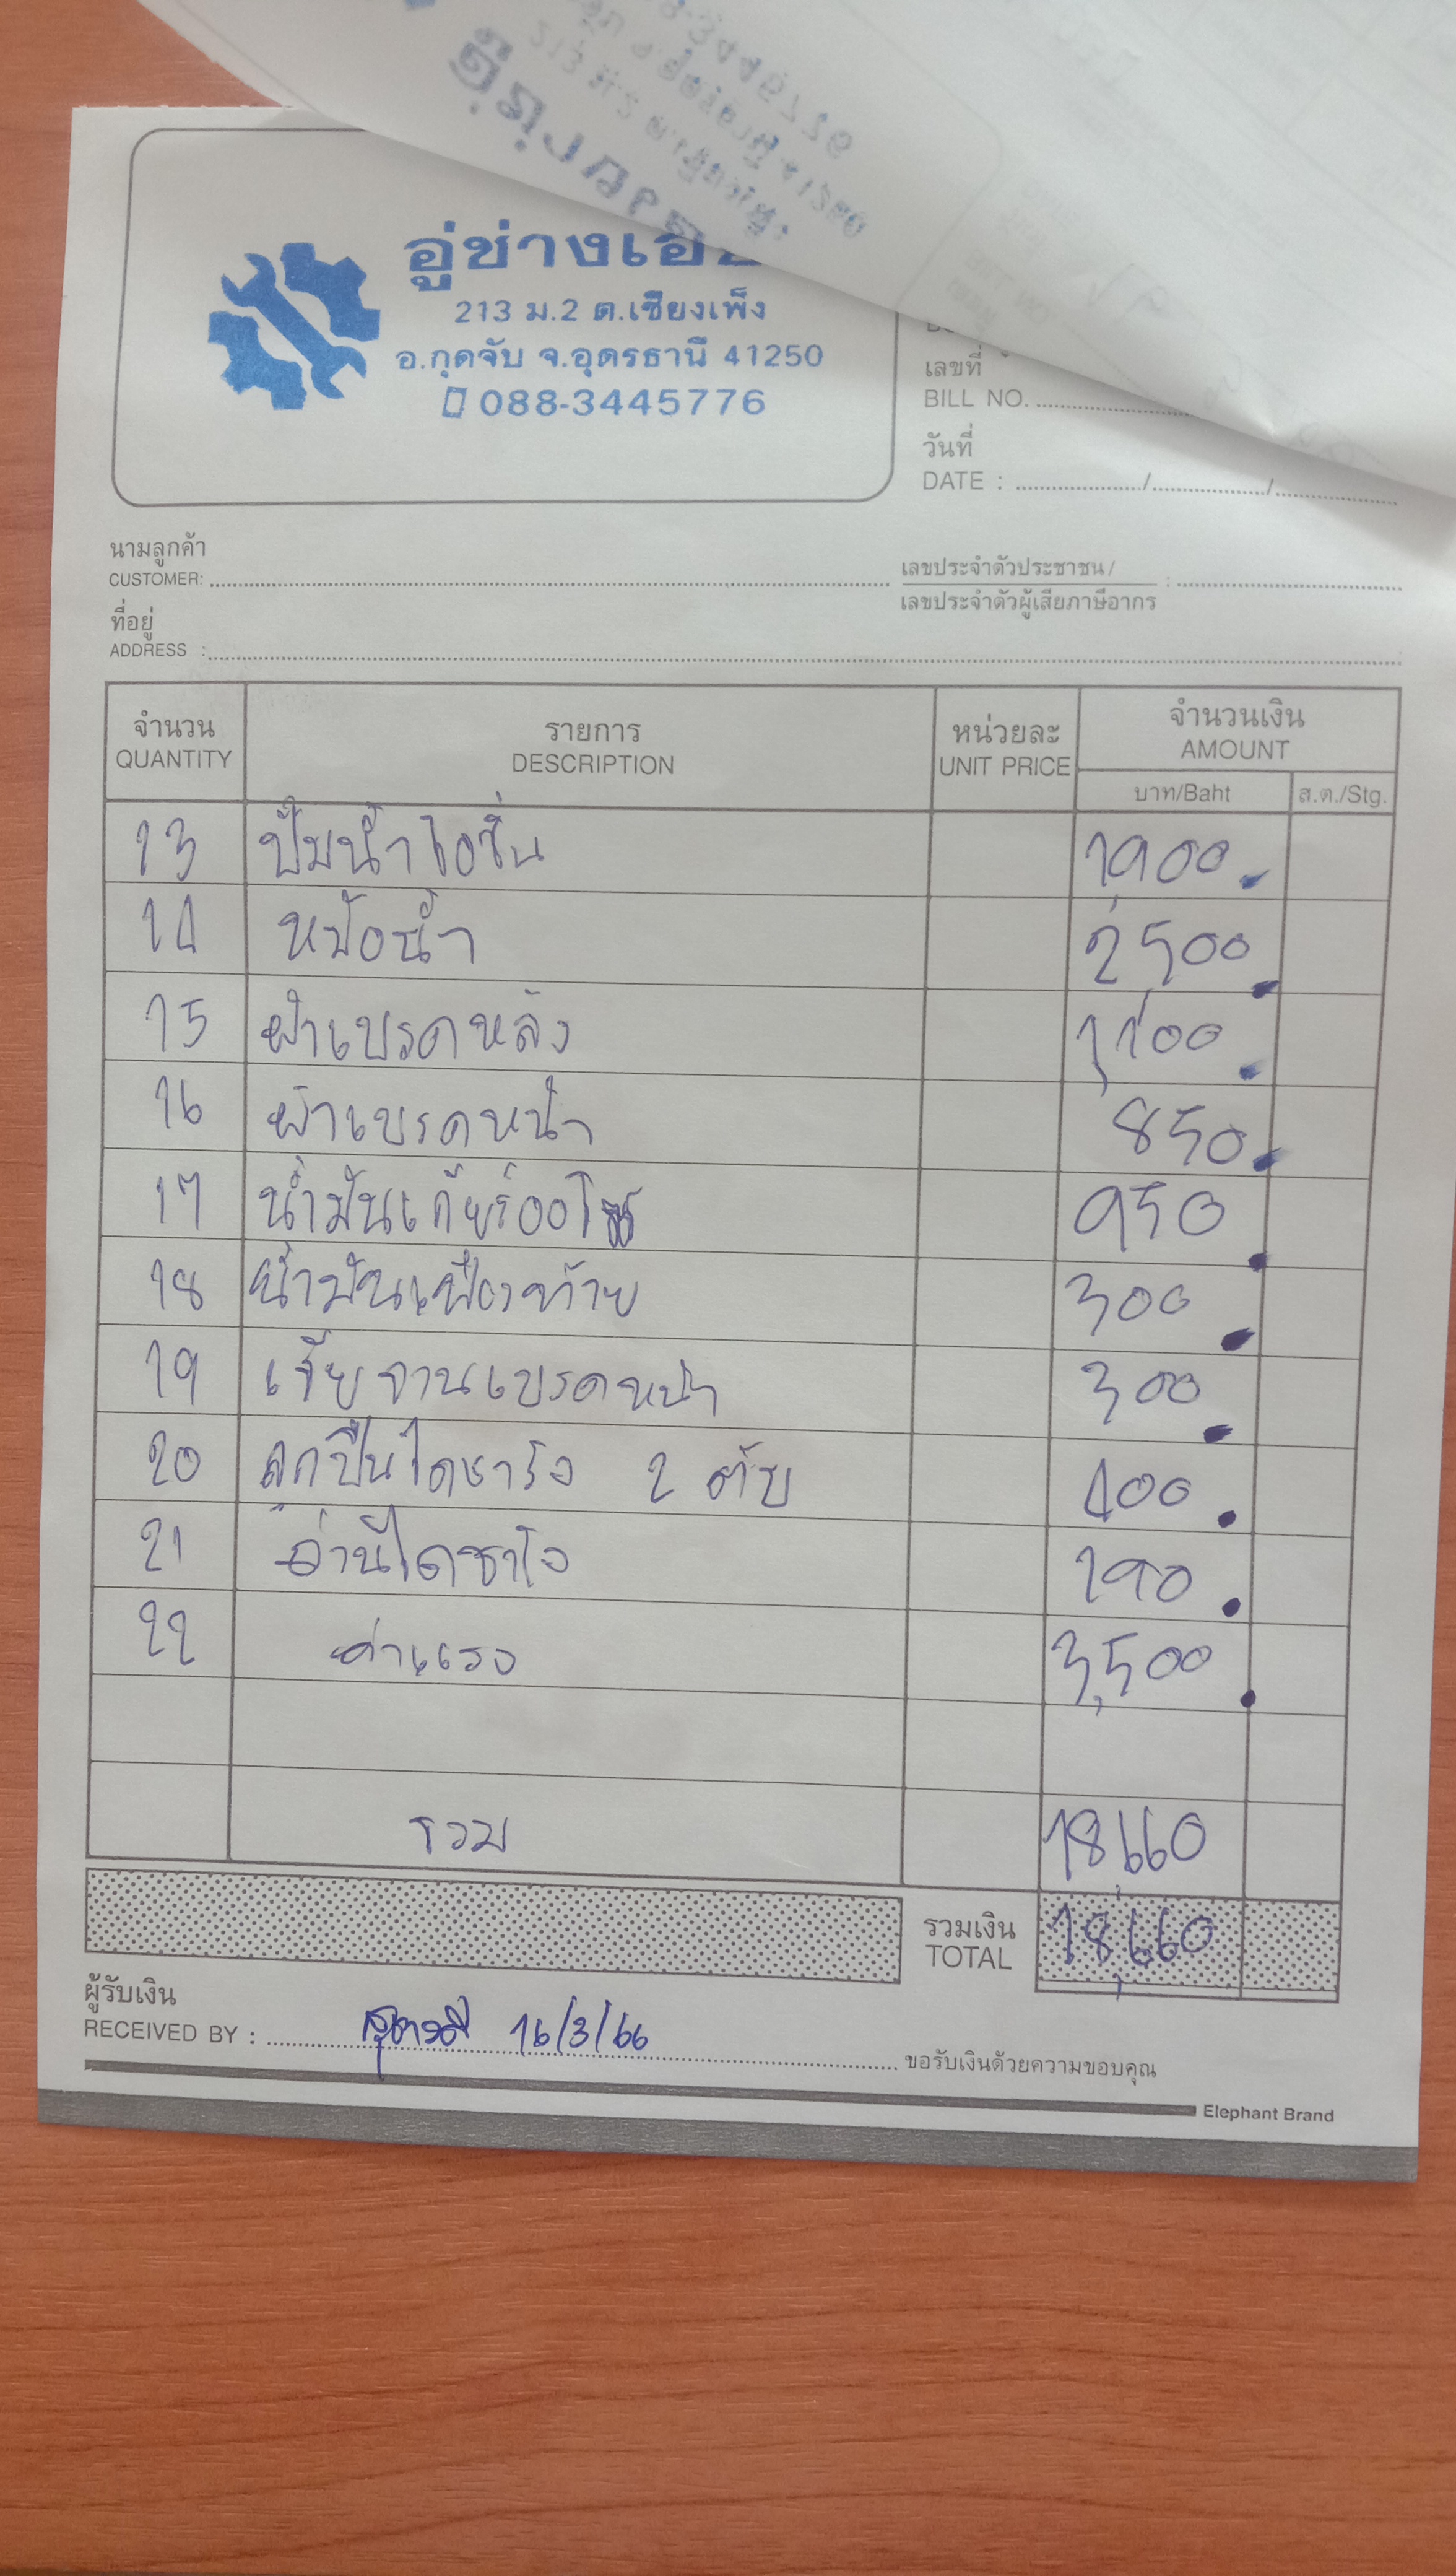 อู่ช่างเอ
213 ม.2 ต.เชียงเพ็ง
อ.กุดจับ จ.อุดรธานี 41250
088-3445776
เลขที่
BILL NO.
วันที่
DATE : / /
นามลูกค้า
CUSTOMER:
เลขประจำตัวประชาชน /
เลขประจำตัวผู้เสียภาษีอากร :
ที่อยู่
ADDRESS :
จำนวน รายการ หน่วยละ จำนวนเงิน
QUANTITY DESCRIPTION UNIT PRICE AMOUNT
บาท/Baht ส.ต./Stg.
13 ปั๊มน้ำไอชิ่น 1900.
14 หม้อน้ำ 2,500.
15 ผ้าเบรคหลัง 1,100.
16 ผ้าเบรคหน้า 850.
17 น้ำมันเกียร์ออโต้ 950.
18 น้ำมันเฟืองท้าย 300.
19 เจียจานเบรคหน้า 300.
20 ลูกปืนไดชาร์จ 2 ตับ 400.
21 ถ่านไดชาร์จ 290.
22 ค่าแรง 3,500.
รวม 18,660
รวมเงิน
TOTAL 18,660
ผู้รับเงิน
RECEIVED BY : 16/3/66 ขอรับเงินด้วยความขอบคุณ
Elephant Brand